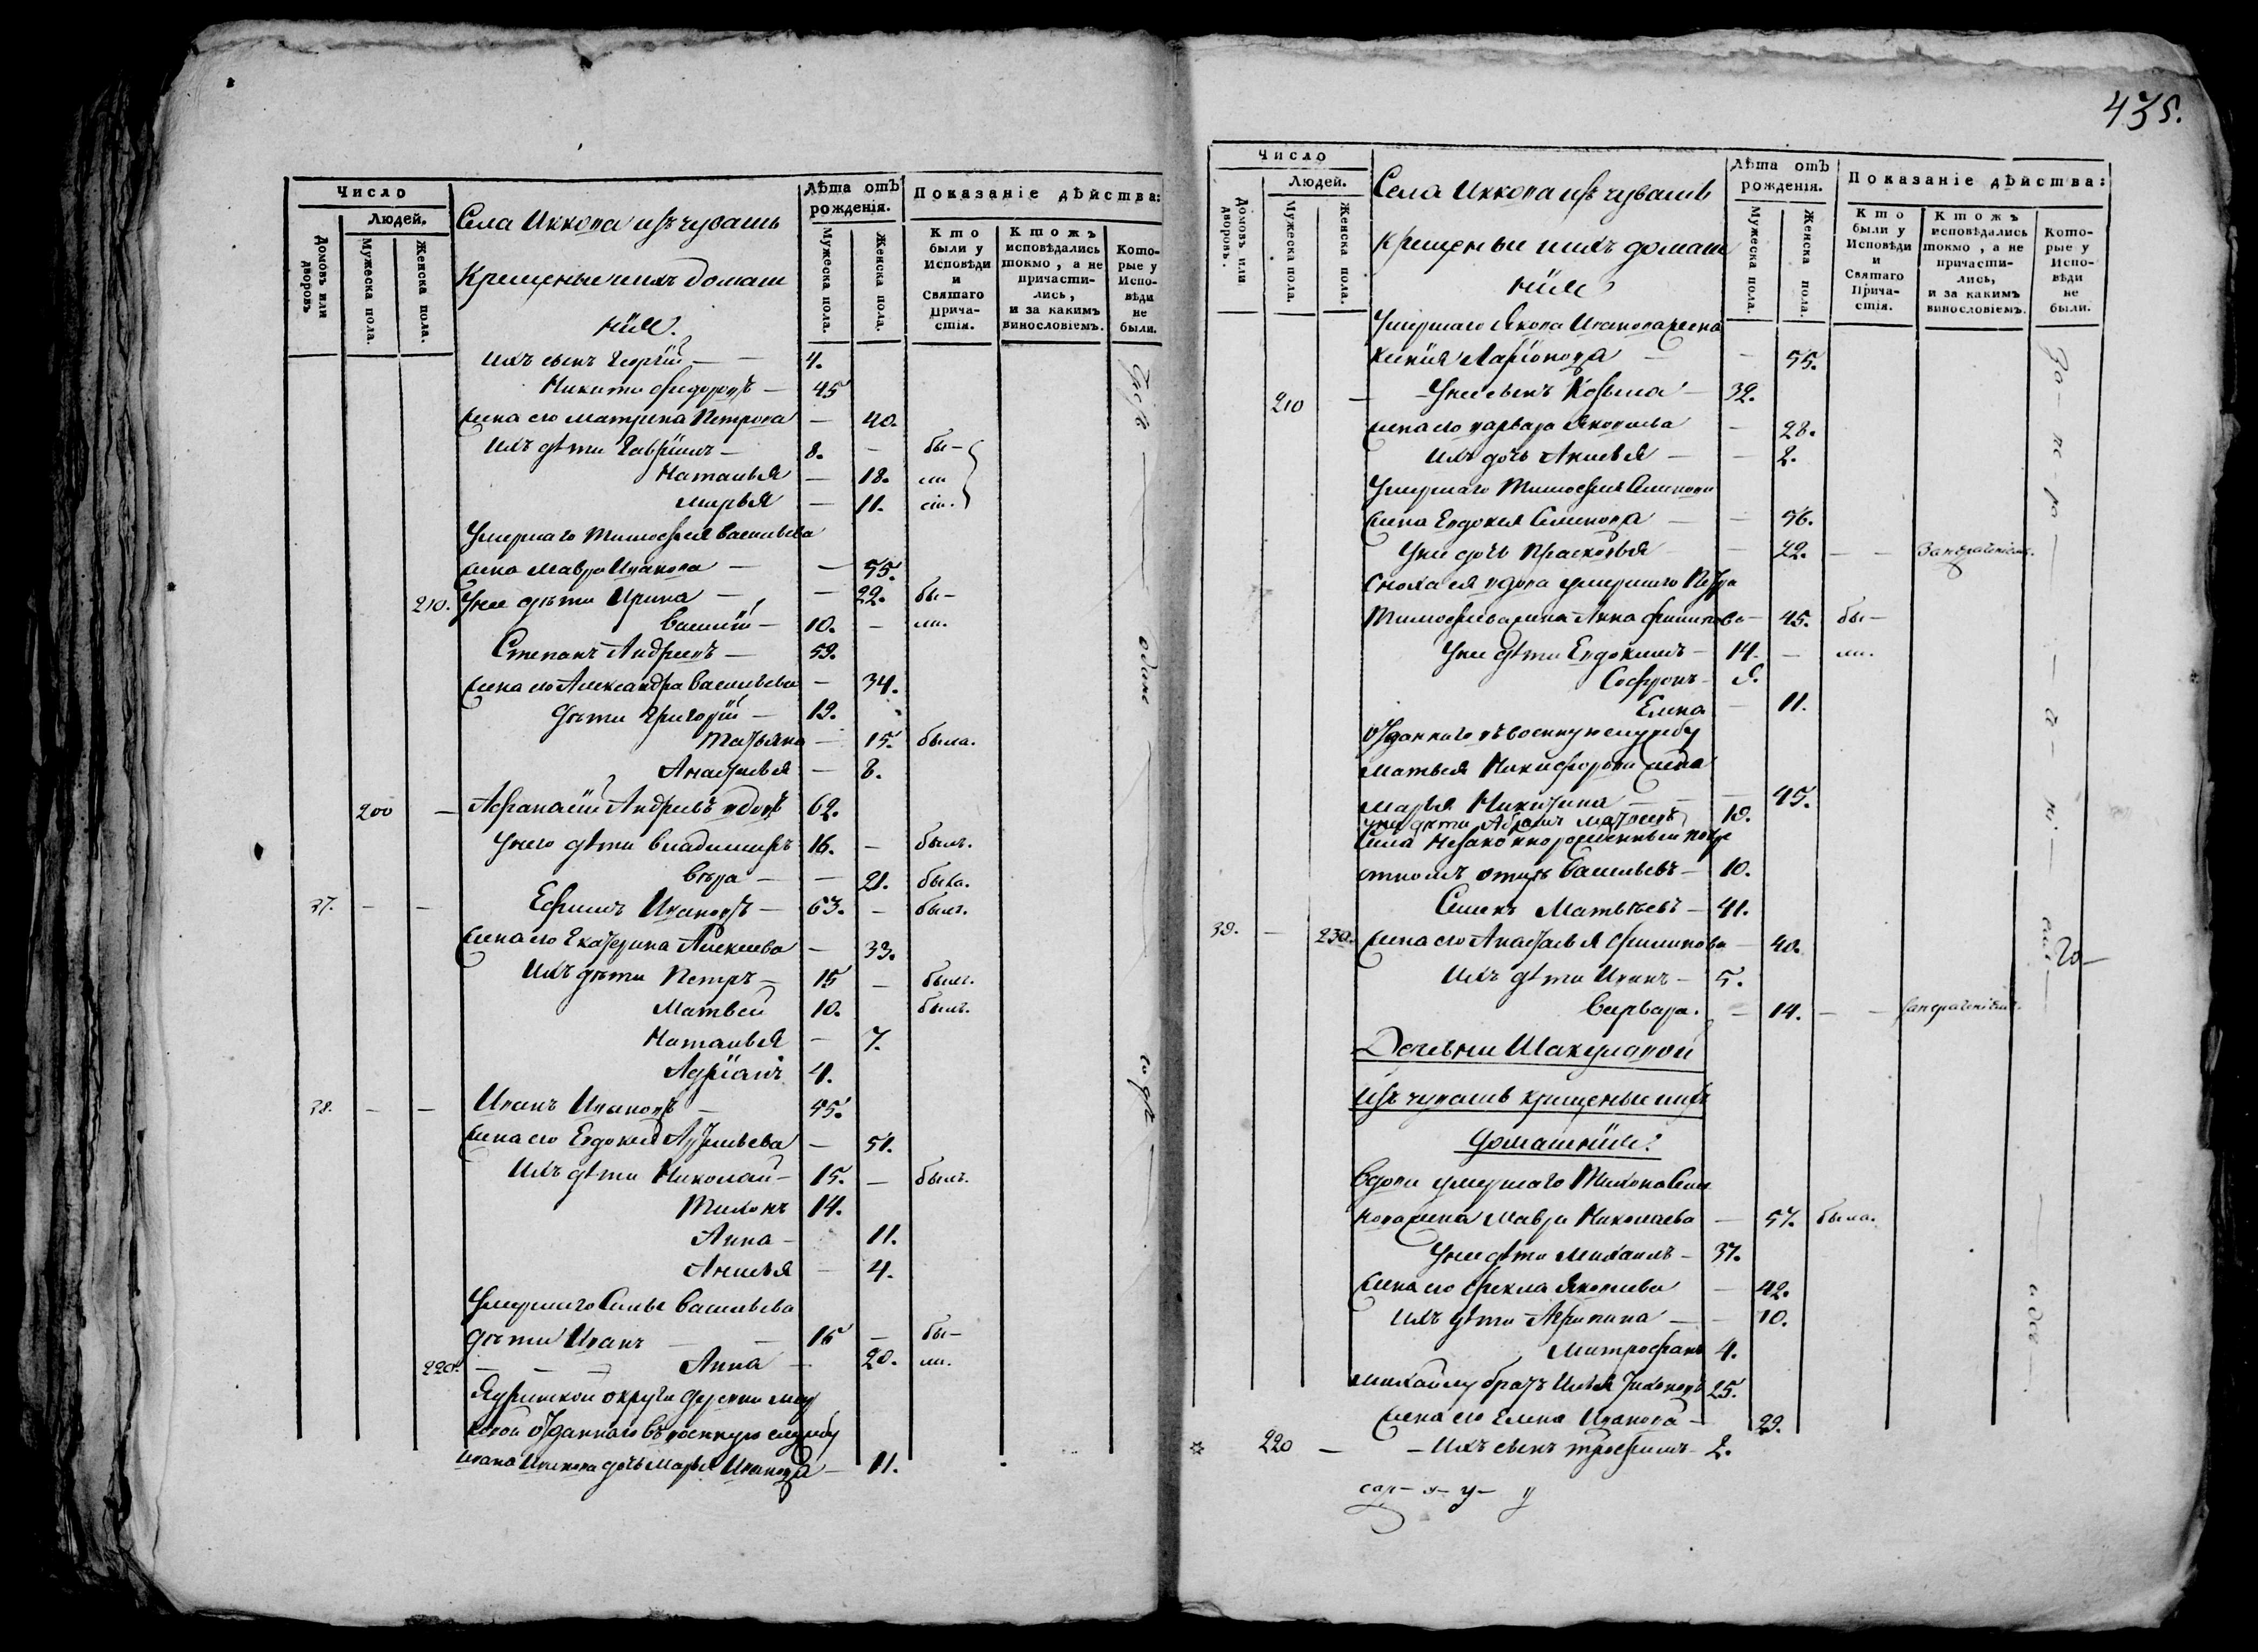 Число
Людей.
Домовъ или дворовъ
Мужеска пола.
Женска пола.
Села Иккова изъ чувашъ
Крещеные и ихъ домаш
нiи.
Лѣта отъ рожденiя.
Мужеска пола.
Женска пола.
Показанiе дѣйства:
Кто были у Исповѣди и Святаго Прича-стiя.
Ктожъ исповѣдались токмо, а не причасти-лись, и за какимъ винословiемъ.
Кото-рые у Испо-вѣди не были.
Ихъ сынъ Георгiй — 4.
Никита Федоровъ — 45
жена его Матрена Петрова — 40.
Ихъ дѣти Гаврiилъ — 8. — бы-
Наталья — 18. ли
Марья — 11.
Умершаго Тимофея Васильева
жена Мавра Иванова — 55.
210. У нее дѣти Ирина — 22. бы-
Василiй — 10. — ли.
Степанъ Андреевъ — 59.
жена его Александра Васильева — 34.
дѣти Григорiй — 19.
Татьяна — 15. была.
Анастасья — 8.
200 — Афанасiй Андреевъ вдовъ 62.
У него дѣти Владимиръ 16. — былъ.
Вѣра — 21. была.
37. — — Ефимъ Ивановъ — 63. — былъ.
жена его Екатерина Алексеева — 33.
Ихъ дѣти Петръ — 15 — былъ.
Матвей 10. былъ.
Наталья — 7.
Адрiанъ 4.
38. — — Иванъ Ивановъ — 45.
жена его Евдокея — 51.
Ихъ дѣти Николай — 15. — былъ.
Тихонъ 14.
Анна — 11.
Анисья — 4.
Умершаго Васильева
дѣти Иванъ — 16 — бы-
220. — — — Анна — 20. ли.
Ядринской округи деревни
отданнаго въ военную службу
Ивана дочь Марья Иванова — 11.
435.
Число
Людей.
Домовъ или дворовъ.
Мужеска пола.
Женска пола.
Села Иккова изъ чувашъ
крещеные и ихъ домаш
нiи
Лѣта отъ рожденiя.
Мужеска пола.
Женска пола.
Показанiе дѣйства:
Кто были у Исповѣди и Святаго Прича-стiя.
Ктожъ исповѣдались токмо, а не причасти-лись, и за какимъ винословiемъ.
Кото-рые у Испо-вѣди не были.
Умершаго Якова Иванова жена
Ксенiя Ларiонова — — 55.
210 — У нее сынъ Козьма — 32.
жена его Варвара Яковлева — 28.
Ихъ дочь Анисья — — 2.
Умершаго Тимофея Семенова
жена Евдокея Семенова — — 56.
У нее дочь Прасковья — 22. — —
Сноха ея вдова умершаго Петра
Тимофеева жена Анна Филипова — 45. бы-
У нее дѣти Евдокимъ — 14. — ли.
Софронъ — 9.
Елена — 11.
Отданнаго въ военную службу
Матвея Никифорова жена
Марья Никитина — — 45.
у нее дѣти Абрамъ Матвеевъ 19.
Васильевъ — 10.
39. — Семенъ Матвѣевъ — 41.
230. жена его Анастасья Филипова — 40.
Ихъ дѣти Иванъ — 5.
Варвара. — 14. — —
Деревни Шакуловой
изъ чувашъ крещеные и ихъ
домашнiи:
Вдова умершаго Тихона Семе
нова жена Мавра Николаева — 57. была.
У нее дѣти Михаилъ — 37.
жена его Фекла Яковлева — 42.
Ихъ дѣти Агрипина — — 10.
Митрофанъ 4.
Михайлу братъ Илья Тихоновъ 25.
жена его Елена Иванова — 29.
220 — — Ихъ сынъ Трофимъ — 2.